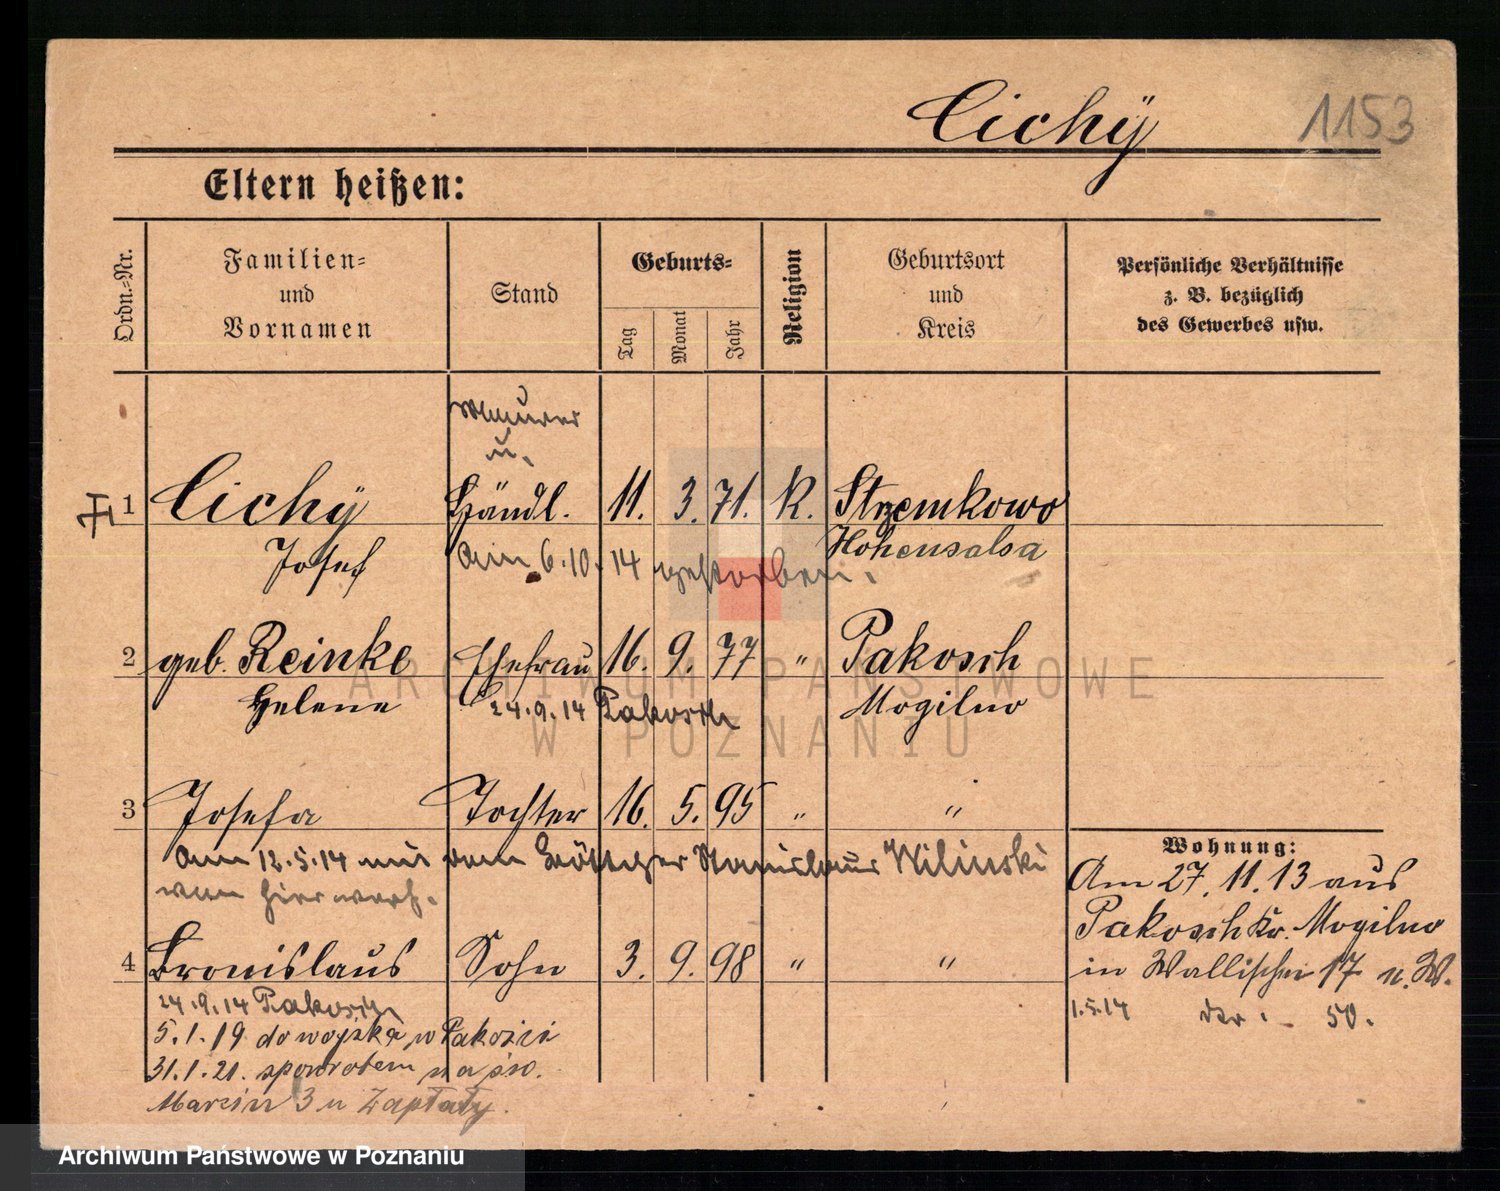 Cichÿ 1153
Eltern heißen:
Ordn.-Nr.
Familien-
und
Vornamen
Stand
Geburts-
Tag
Monat
Jahr
Religion
Geburtsort
und
Kreis
Persönliche Verhältnisse
z. B. bezüglich
des Gewerbes usw.
Maurer
u.
1 Cichÿ Händl. 11. 3. 71. K. Strzemkowo
Josef Am 6.10.14 gestorben. Hohensalsa
2 geb. Reinke Ehefrau 16. 9. 77 " Pakosch
Helene 24.9.14 Pakosch Mogilno
3 Josefa Tochter 16. 5. 95 " "
Am 12.5.14 mit dem Böttcher Stanislaus Wilinski
von hier verh.
4 Bronislaus Sohn 3. 9. 98 " "
24.9.14 Pakosch
5.1.19 do wojska w Pakości
31.1.21. spowrotem na św.
Marcin 3 u Zapłaty.
Wohnung:
Am 27.11.13 aus
Pakosch Kr. Mogilno
in Wallischei 17 n. W.
1.5.14 50.
ARCHIWUM PAŃSTWOWE
W POZNANIU
Archiwum Państwowe w Poznaniu